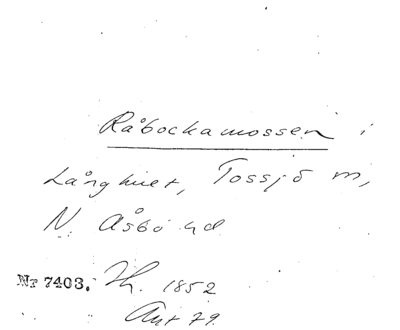 Råbockamossen i
Långhult, Tossjö m,
N. Åsbo hd
Nr 7403. Th. 1852
Ant 79